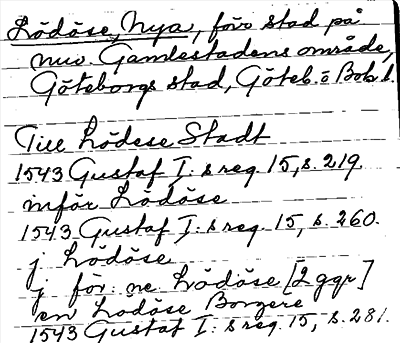 Lödöse, Nya, förr stad på
nuv. Gamlestadens område,
Göteborgs stad, Göteb. o Boh l.
Till Lödese Stadt
1543 Gustaf I: s reg. 15, s. 219.
inför Lödöse
1543 Gustaf I: s reg. 15, s. 260.
j Lödöse
j för: ne Lödöse [2 ggr]
en Lodöse Borgere
1543 Gustaf I: s reg. 15, s. 281.